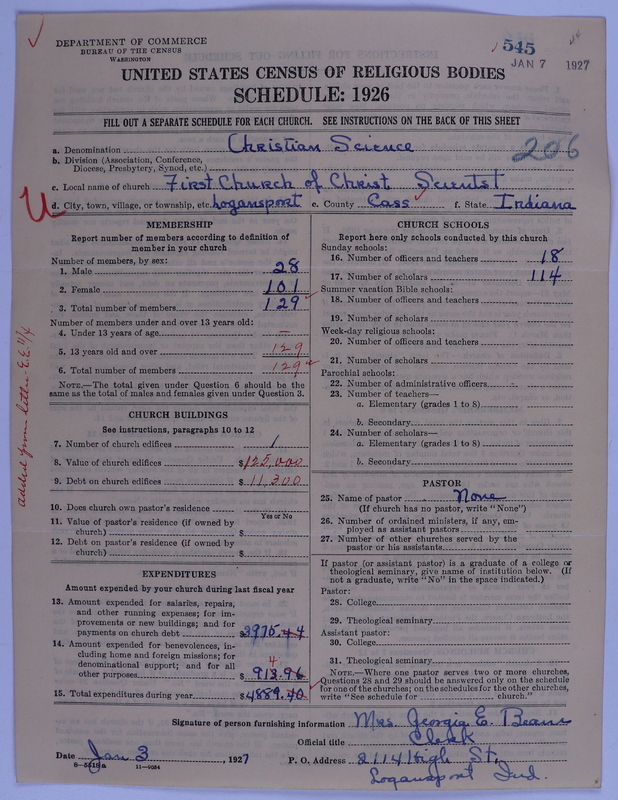 DEPARTMENT OF COMMERCE
BUREAU OF THE CENSUS
WASHINGTON
545
JAN 7 1927
UNITED STATES CENSUS OF RELIGIOUS BODIES
SCHEDULE: 1926
FILL OUT A SEPARATE SCHEDULE FOR EACH CHURCH. SEE INSTRUCTIONS ON THE BACK OF THIS SHEET
a. Denomination Christian Science
206
b. Division (Association, Conference, Diocese, Presbytery, Synod, etc.)
c. Local name of church First Church of Christ Scientist
d. City, town, village, or township, etc. Logansport e. County Cass f. State Indiana
added from letter E.E. 11/4
MEMBERSHIP
Report number of members according to definition of
member in your church
Number of members, by sex:
1. Male 28
2. Female 101
3. Total number of members 129
Number of members under and over 13 years old:
4. Under 13 years of age —
5. 13 years old and over 129
6. Total number of members 129
NOTE.—The total given under Question 6 should be the
same as the total of males and females given under Question 3.
CHURCH BUILDINGS
See instructions, paragraphs 10 to 12
7. Number of church edifices 1
8. Value of church edifices $125,000
9. Debt on church edifices $11,300
10. Does church own pastor's residence
Yes or No
11. Value of pastor's residence (if owned by
church) $
12. Debt on pastor's residence (if owned by
church) $
EXPENDITURES
Amount expended by your church during last fiscal year
13. Amount expended for salaries, repairs,
and other running expenses; for im-
provements or new buildings; and for
payments on church debt $3975.44
14. Amount expended for benevolences, in-
cluding home and foreign missions; for
denominational support; and for all
4
other purposes $913.96
15. Total expenditures during year $4889.40
CHURCH SCHOOLS
Report here only schools conducted by this church
Sunday schools:
16. Number of officers and teachers 18
17. Number of scholars 114
Summer vacation Bible schools:
18. Number of officers and teachers
19. Number of scholars
Week-day religious schools:
20. Number of officers and teachers
21. Number of scholars
Parochial schools:
22. Number of administrative officers
23. Number of teachers—
a. Elementary (grades 1 to 8)
b. Secondary
24. Number of scholars—
a. Elementary (grades 1 to 8)
b. Secondary
PASTOR
25. Name of pastor None
(If church has no pastor, write "None")
26. Number of ordained ministers, if any, em-
ployed as assistant pastors
27. Number of other churches served by the
pastor or his assistants
If pastor (or assistant pastor) is a graduate of a college or
theological seminary, give name of institution below. (If
not a graduate, write "No" in the space indicated.)
Pastor:
28. College
29. Theological seminary
Assistant pastor:
30. College
31. Theological seminary
NOTE.—Where one pastor serves two or more churches,
Questions 28 and 29 should be answered only on the schedule
for one of the churches; on the schedules for the other churches,
write "See schedule for church."
Signature of person furnishing information Mrs. Georgia E. Beans
Official title Clerk
Date Jan 3, 1927 P. O. Address 2114 High St,
8-5518a 11-9054
Logansport Ind.